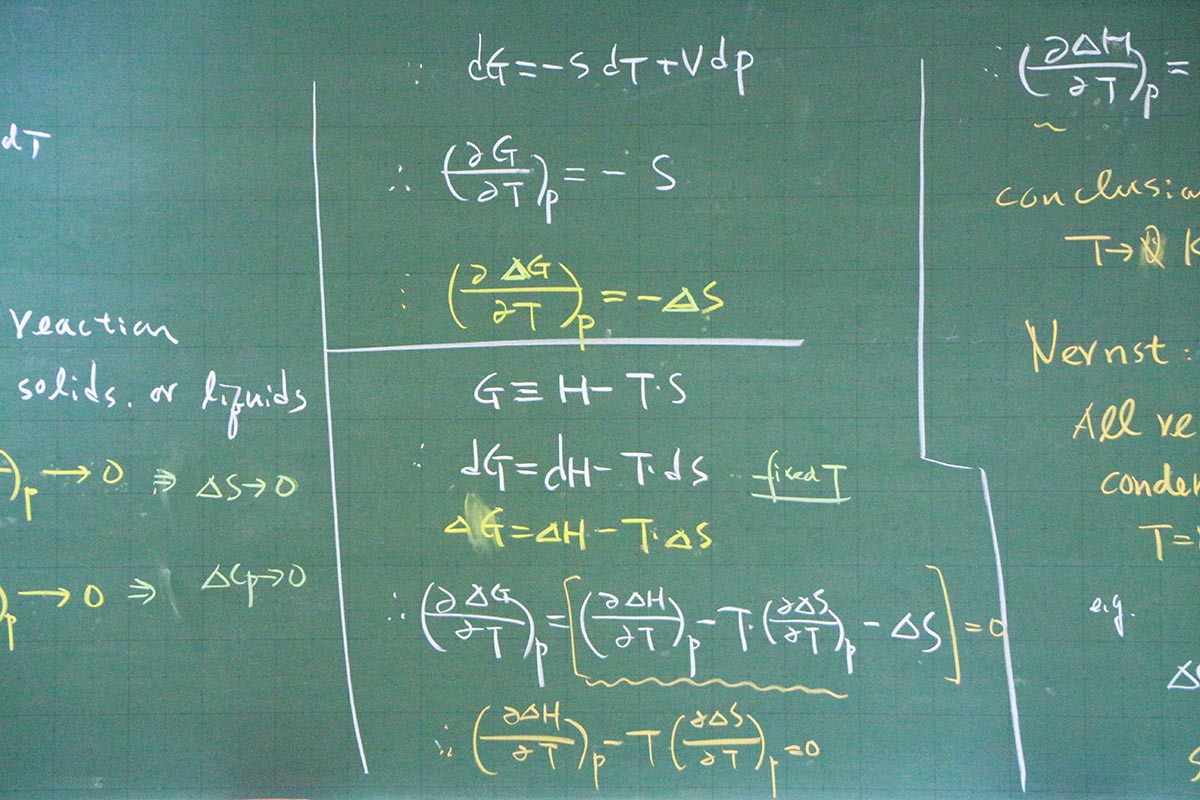 dT
reaction
solids. or liquids
)p → 0 ⇒ ΔS→0
)p → 0 ⇒ ΔCp→0
∵ dG=-SdT+Vdp
∴ (∂G/∂T)p = - S
∴ (∂ΔG/∂T)p = -ΔS
G ≡ H-T·S
∴ dG=dH-T·dS fixed T
ΔG=ΔH-T·ΔS
∴ (∂ΔG/∂T)p = [(∂ΔH/∂T)p - T·(∂ΔS/∂T)p - ΔS] = 0
∴ (∂ΔH/∂T)p - T(∂ΔS/∂T)p = 0
∵ (∂ΔH/∂T)p =
T→0 K
Nernst:
All
T=
e.g.